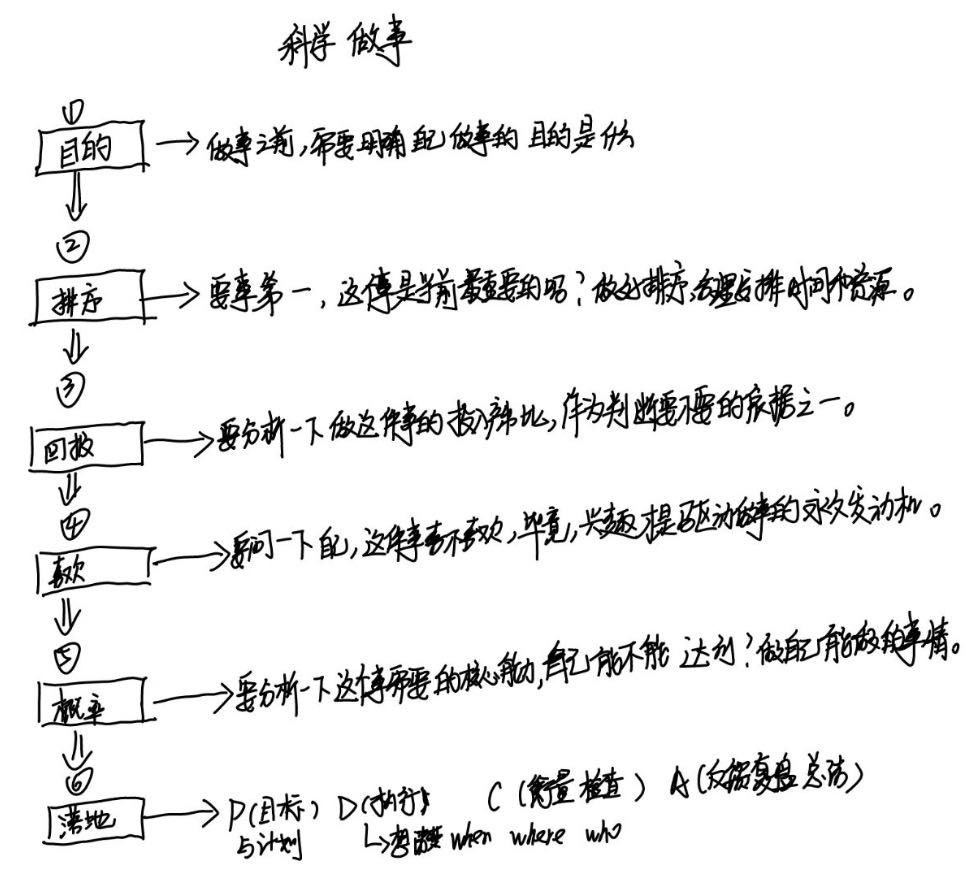 科学 做事
①
目的 → 做事之前,需要明确自己做事的目的是什么
②
排序 → 要事第一,这件事是当前最重要的吗?做好排序,合理安排时间和资源。
③
回报 → 要分析一下做这件事的投入产出比,作为判断要不要的依据之一。
④
喜欢 → 要问一下自己,这件事喜不喜欢,毕竟,兴趣才是驱动做事的永久发动机。
⑤
概率 → 要分析一下这件事需要的核心能力,自己能不能达到?做自己能做的事情。
⑥
落地 → P(目标) D(执行) C(衡量检查) A(反馈复盘总结)
与计划 when where who